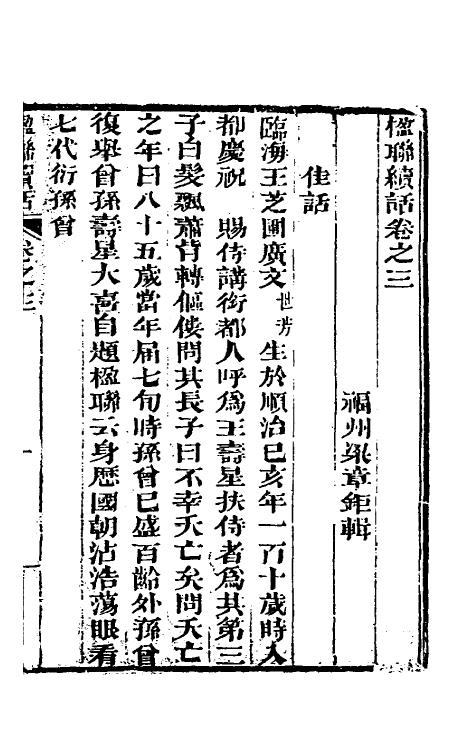 楹聯續話卷之三
福州梁章鉅輯
佳話
臨海王芝圃廣文世芳生於順治己亥年一百十歲時入
都慶祝　賜侍講銜都人呼爲王壽星扶侍者爲其第三
子白髮飄蕭背轉傴僂問其長子曰不幸夭亡矣問夭亡
之年曰八十五歲當年届七旬時孫曾已盛百齡外孫曾
復舉曾孫壽星大喜自題楹聯云身歷國朝沾浩蕩眼看
七代衍孫曾
楹聯續話
卷之三
一